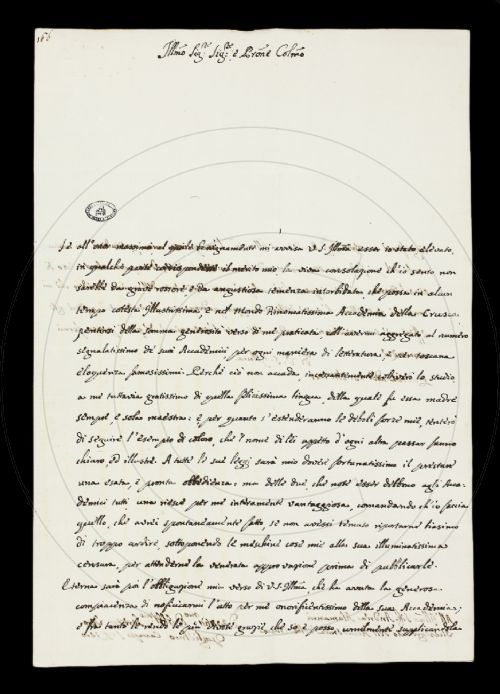 Illmo Sigre Sigre e Prone Colmo
Se all'onor massimo al quale benignamente mi avvisa V.S. Illma esser io stato elevato,
in qualche parte corrispondesse il merito mio, la viva consolazione ch'io sento non
sarebbe da giusto rossore e da angustiosa temenza intorbidata, che possa in alcun
tempo cotesta Illustrissima, e nel Mondo Rinomatissima Accademia della Crusca
pentirsi della somma generosità verso di me praticata, coll'avermi aggregato al numero
segnalatissimo de suoi Accademici per ogni maniera di letteratura, e per toscana
eloquenza famosissimi. Perchè ciò non accada, incessantemente coltiverò lo studio,
a me tuttavia gratissimo di quella felicissima lingua della quale fu essa madre
sempre, e sola maestra: e per quanto s'estenderanno le deboli forze mie, tenterò
di seguire l'esempio di coloro, che 'l nome di lei appetto d'ogni altra nazion fanno
chiaro, ed illustre. A tutte le sue leggi sarà mio dovere fortunatissimo il prestare
una esata, e pronta obbedienza: ma delle due che note esser debbono agli Acca-
demici tutti una riesce per me interamente vantaggiosa, comandando ch'io faccia
quello, che avrei spontaneamente fatto, se non avessi temuto riportarne biasimo
di troppo ardire, sottoponendo le meschine cose mie alla sua illuminatissima
censura, per attenderne la venerata approvazione prima di pubblicarle.
Eterna sarà poi l'obbligazione mia verso di V.S. Illma, che ha avuta la generosa
compiacenza di noticiarmi l'atto per me onorificentissimo della sua Accademia;
e frattanto le rendo le più divote grazie, che so e posso, umilmente supplicandola